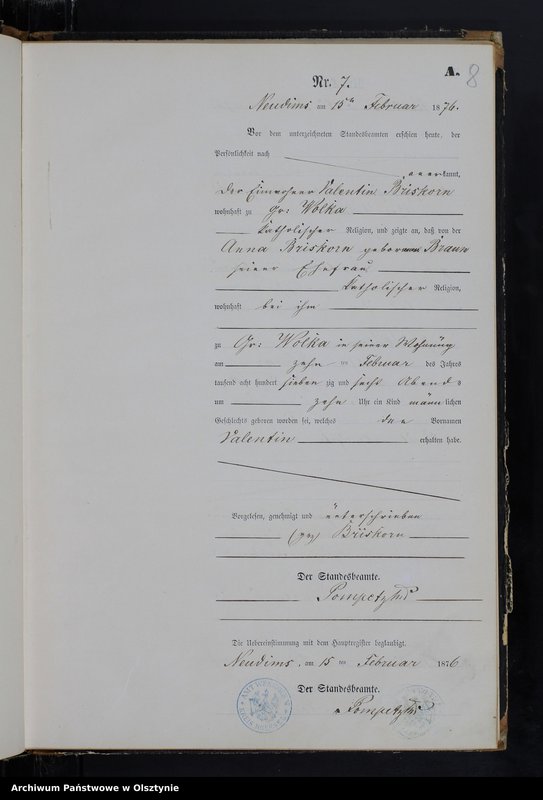 A. 8
Nr. 7.
Neudims am 15ten Februar 1876.
Vor dem unterzeichneten Standesbeamten erschien heute, der
Persönlichkeit nach
kannt,
der Einwohner Valentin Briskorn
wohnhaft zu Gr: Wolka
katholischer Religion, und zeigte an, daß von der
Anna Briskorn geborenen Braun
seiner Ehefrau
katholischer Religion,
wohnhaft bei ihm
zu Gr: Wolka in seiner Wohnung
am zehn ten Februar des Jahres
tausend acht hundert sieben zig und sechs Abends
um zehn Uhr ein Kind männlichen
Geschlechts geboren worden sei, welches den Vornamen
Valentin erhalten habe.
Vorgelesen, genehmigt und unterschrieben
Briskorn
Der Standesbeamte.
Die Uebereinstimmung mit dem Hauptregister beglaubigt.
Neudims, am 15 ten Februar 1876
Der Standesbeamte.
Archiwum Państwowe w Olsztynie